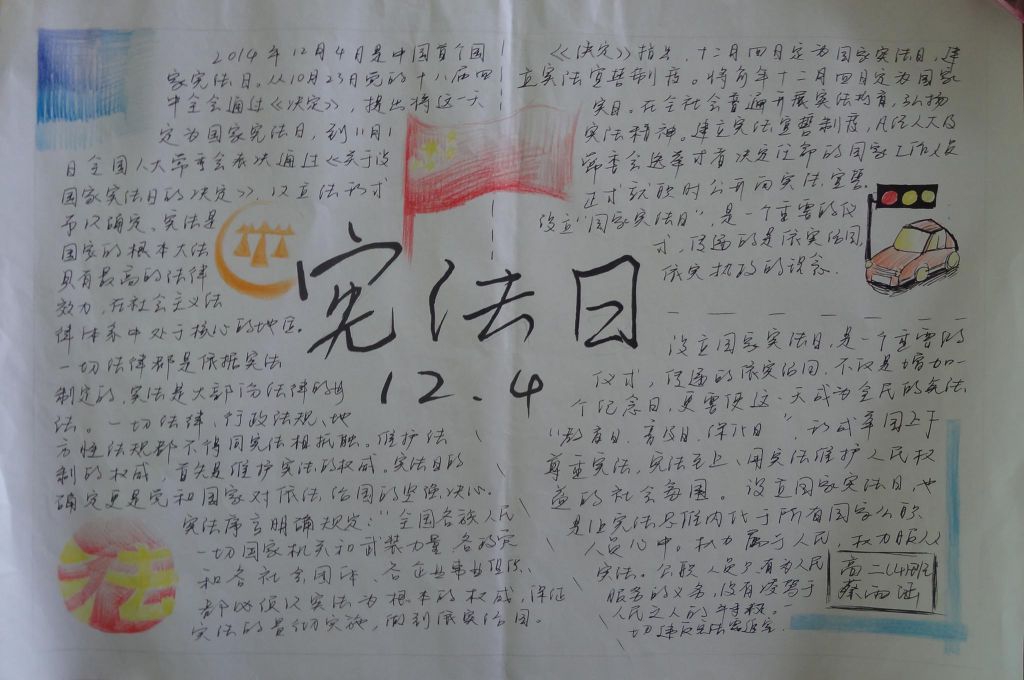 2014年12月4日是中国首个国
家宪法日。从10月23日党的十八届四
中全会通过《决定》，提出将这一天
定为国家宪法日，到11月1
日全国人大常委会表决通过《关于设
国家宪法日的决定》，以立法形式
予以确定。宪法是
国家的根本大法
具有最高的法律
效力，在社会主义法
律体系中处于核心的地位。
一切法律都是依据宪法
制定的，宪法是大部门法律的母
法。一切法律、行政法规、地
方性法规都不得同宪法相抵触。维护法
制的权威，首先是维护宪法的权威。宪法日的
确定更是党和国家对依法治国的坚强决心。
宪法序言明确规定："全国各族人民
一切国家机关和武装力量、各政党
和各社会团体、各企业事业组织、
都必须以宪法为根本的权威，保证
宪法的贯彻实施，做到依宪治国。
宪法日
12.4
《决定》指出，十二月四日定为国家宪法日，建
立宪法宣誓制度。将每年十二月四日定为国家
宪日。在全社会普遍开展宪法教育，弘扬
宪法精神。建立宪法宣誓制度，凡经人大及
常委会选举或者决定任命的国家工作人员
正式就职时公开向宪法宣誓。
设立"国家宪法日"，是一个重要的仪
式，传递的是依宪治国，
依宪执政的理念。
设立国家宪法日，是一个重要的
仪式，传递的依宪治国，不仅是增加一
个纪念日，更要使这一天成为全民的宪法
"教育日、普及日、深化日"，形成举国上下
尊重宪法，宪法至上、用宪法维护人民权
益的社会氛围。设立国家宪法日，也
是让宪法思维内化于所有国家公职
人员心中。权力属于人民，权力服从
宪法。公职人员只有为人民
服务的义务，没有凌驾于
人民之人的特权。一
切违反宪法需追究.
高二14班
蔡雨
法